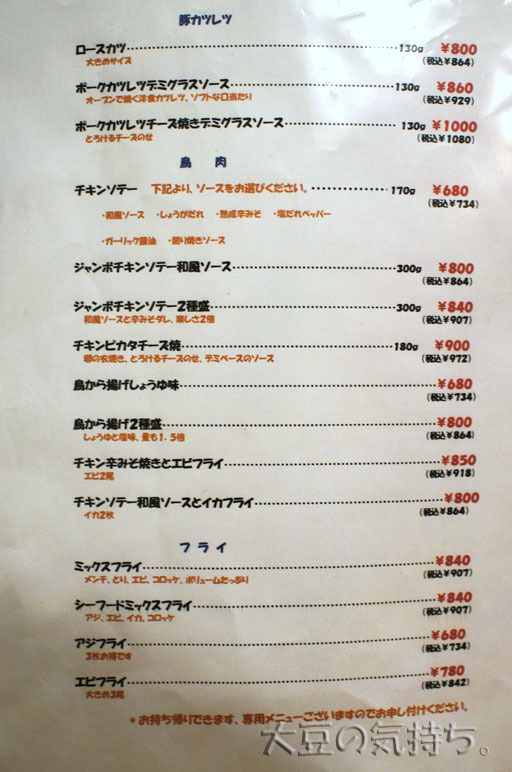 豚カツレツ
ロースカツ 130g ¥800
大きめサイズ (税込¥864)
ポークカツレツデミグラスソース 130g ¥860
オーブンで焼く洋食カツレツ、ソフトな口当たり (税込¥929)
ポークカツレツチーズ焼きデミグラスソース 130g ¥1000
とろけるチーズのせ (税込¥1080)
鳥 肉
チキンソテー 下記より、ソースをお選びください。 170g ¥680
(税込¥734)
・和風ソース ・しょうがだれ ・熟成辛みそ ・塩だれペッパー
・ガーリック醤油 ・照り焼きソース
ジャンボチキンソテー和風ソース 300g ¥800
(税込¥864)
ジャンボチキンソテー2種盛 300g ¥840
和風ソースと辛みそダレ、楽しさ2倍 (税込¥907)
チキンピカタチーズ焼 180g ¥900
卵の衣焼き、とろけるチーズのせ、デミベースのソース (税込¥972)
鳥から揚げしょうゆ味 ¥680
(税込¥734)
鳥から揚げ2種盛 ¥800
しょうゆと塩味、量も1.5倍 (税込¥864)
チキン辛みそ焼きとエビフライ ¥850
エビ2尾 (税込¥918)
チキンソテー和風ソースとイカフライ ¥800
イカ2枚 (税込¥864)
フライ
ミックスフライ ¥840
メンチ、とり、エビ、コロッケ、ボリュームたっぷり (税込¥907)
シーフードミックスフライ ¥840
アジ、エビ、イカ、コロッケ (税込¥907)
アジフライ ¥680
3枚お得です (税込¥734)
エビフライ ¥780
大きめ3尾 (税込¥842)
*お持ち帰りできます、専用メニューございますのでお申し付けください。
大豆の気持ち。